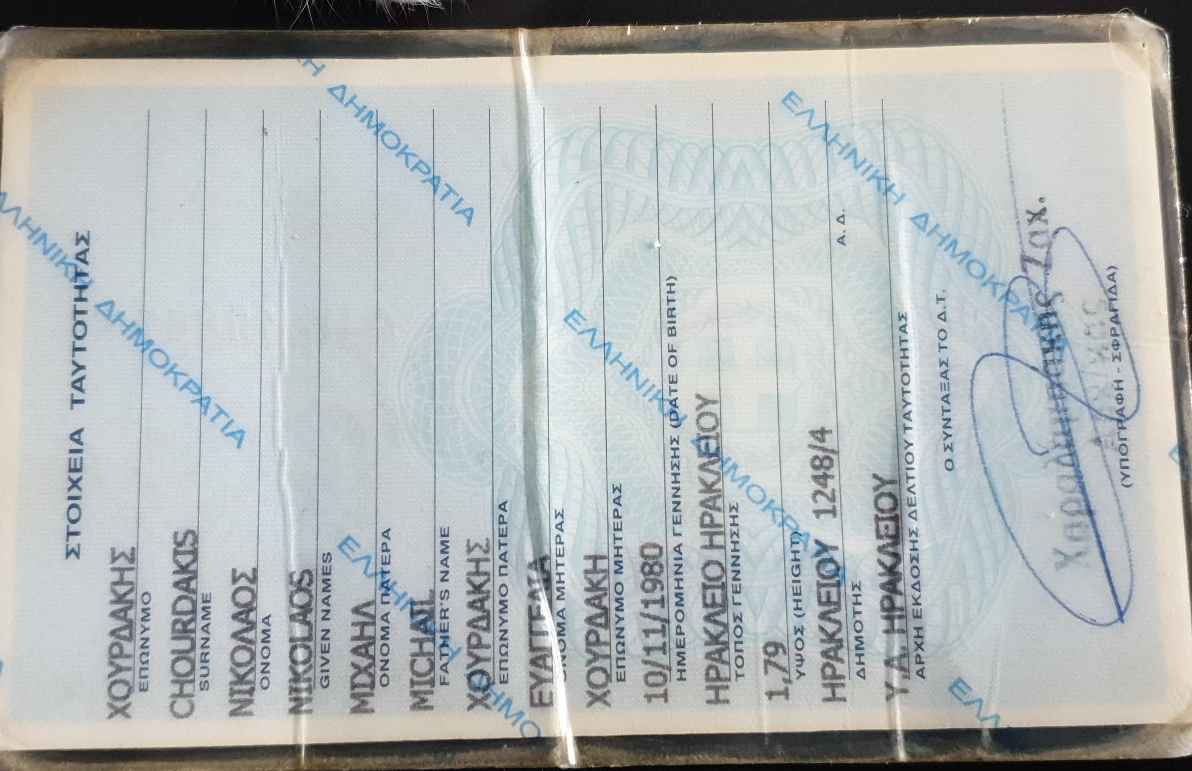 ΣΤΟΙΧΕΙΑ ΤΑΥΤΟΤΗΤΑΣ
ΧΟΥΡΔΑΚΗΣ
ΕΠΩΝΥΜΟ
CHOURDAKIS
SURNAME
ΝΙΚΟΛΑΟΣ
ΟΝΟΜΑ
NIKOLAOS
GIVEN NAMES
ΜΙΧΑΗΛ
ΟΝΟΜΑ ΠΑΤΕΡΑ
MICHAIL
FATHER'S NAME
ΧΟΥΡΔΑΚΗΣ
ΕΠΩΝΥΜΟ ΠΑΤΕΡΑ
ΕΥΑΓΓΕΛΙΑ
ΟΝΟΜΑ ΜΗΤΕΡΑΣ
ΧΟΥΡΔΑΚΗ
ΕΠΩΝΥΜΟ ΜΗΤΕΡΑΣ
10/11/1980
ΗΜΕΡΟΜΗΝΙΑ ΓΕΝΝΗΣΗΣ (DATE OF BIRTH)
ΗΡΑΚΛΕΙΟ ΗΡΑΚΛΕΙΟΥ
ΤΟΠΟΣ ΓΕΝΝΗΣΗΣ
1,79
ΥΨΟΣ (HEIGHT)
ΗΡΑΚΛΕΙΟΥ 1248/4
ΔΗΜΟΤΗΣ Α. Δ.
Υ.Α. ΗΡΑΚΛΕΙΟΥ
ΑΡΧΗ ΕΚΔΟΣΗΣ ΔΕΛΤΙΟΥ ΤΑΥΤΟΤΗΤΑΣ
Ο ΣΥΝΤΑΞΑΣ ΤΟ Δ.Τ.
Χαραλαμπάκης Ζαχ.
(ΥΠΟΓΡΑΦΗ - ΣΦΡΑΓΙΔΑ)
ΕΛΛΗΝΙΚΗ ΔΗΜΟΚΡΑΤΙΑ
ΕΛΛΗΝΙΚΗ ΔΗΜΟΚΡΑΤΙΑ
ΕΛΛΗΝΙΚΗ ΔΗΜΟΚΡΑΤΙΑ
ΕΛΛΗΝΙΚΗ ΔΗΜΟΚΡΑΤΙΑ